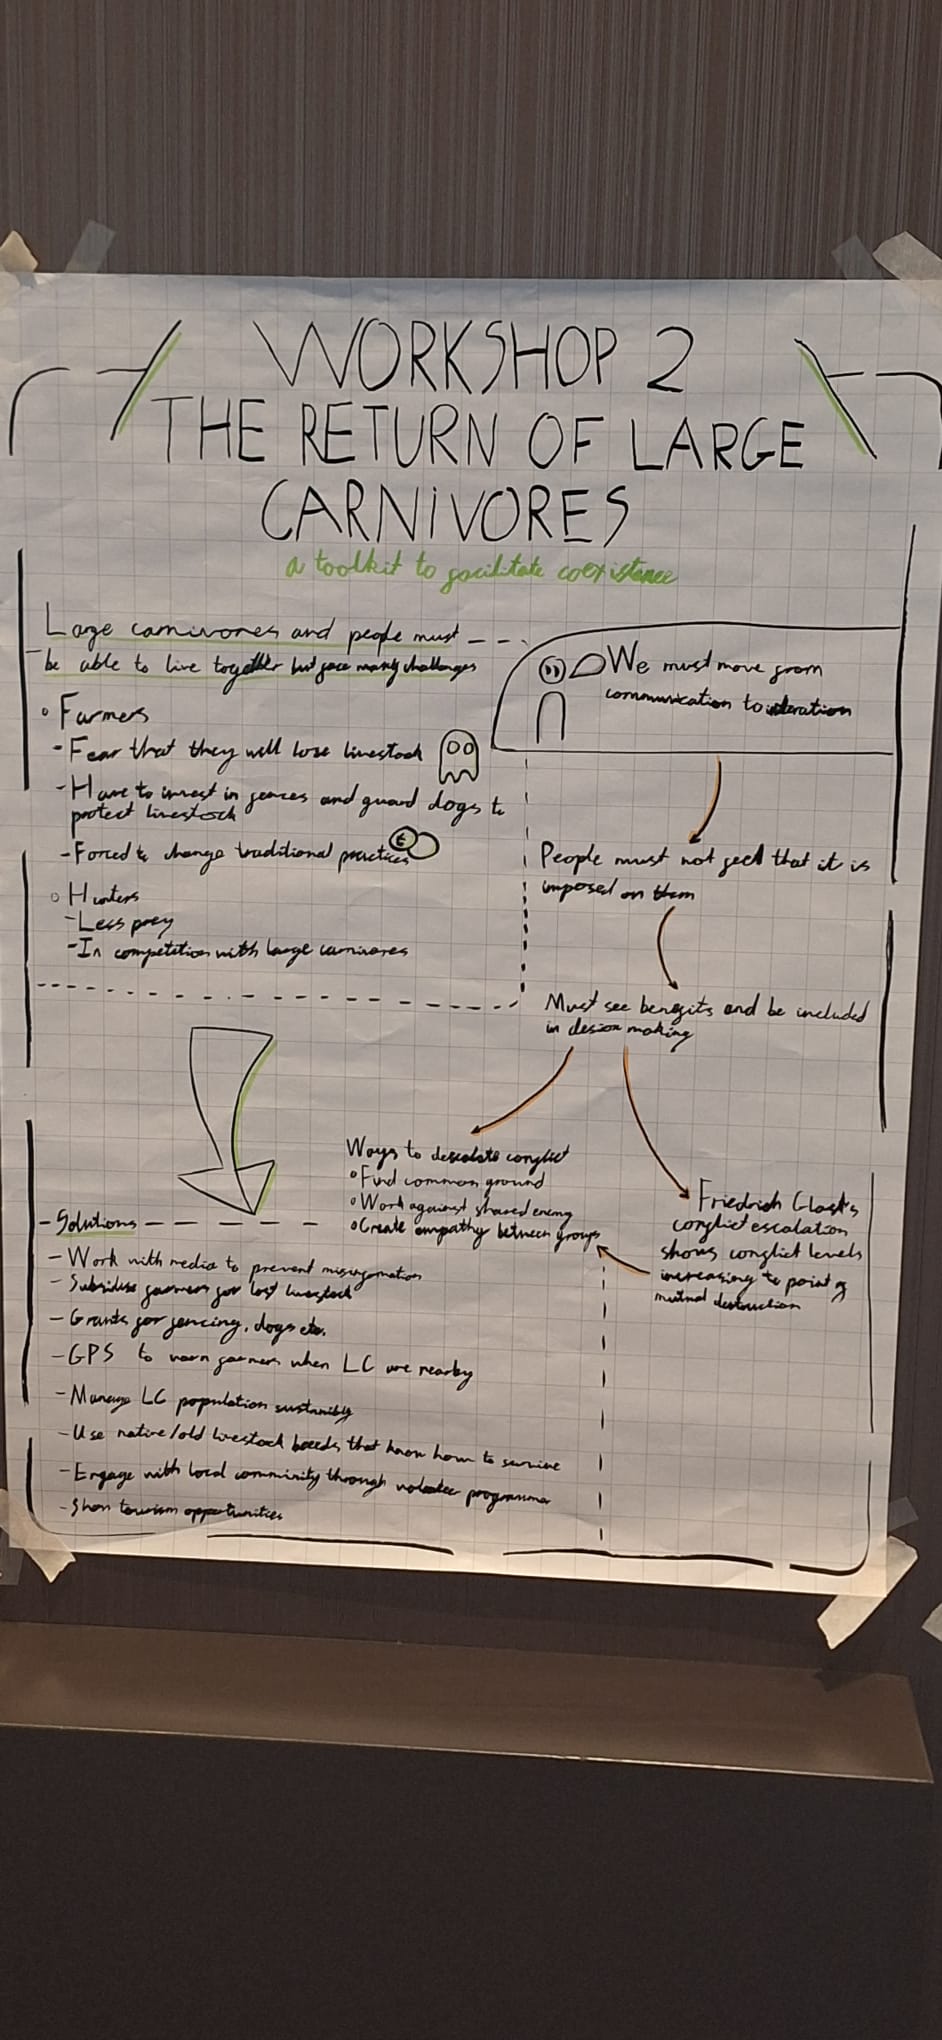 WORKSHOP 2
THE RETURN OF LARGE
CARNIVORES
a toolkit to facilitate coexistance
Large carnivores and people must
be able to live together but face many challenges
Farmers
- Fear that they will lose livestock
- Have to invest in fences and guard dogs to
protect livestock
- Forced to change traditional practices
€
Hunters
- Less prey
- In competition with large carnivores
We must move from
communication to
People must not feel that it is
imposed on them
Must see benefits and be included
in desion making
Ways to descalate conflict
Find common ground
Work against shared enemy
Create empathy between groups
Friedrich Glasl's
conflict escalation
shows conflict levels
increasing to point of
mutual destruction
- Solutions
- Work with media to prevent misinformation
- Subsidise farmers for lost livestock
- Grants for fencing, dogs etc.
- GPS to warn farmers when LC are nearby
- Manage LC population sustainibly
- Use native/old livestock breeds that know how to survive
- Engage with local comminity through programma
- Show tourism opportunities